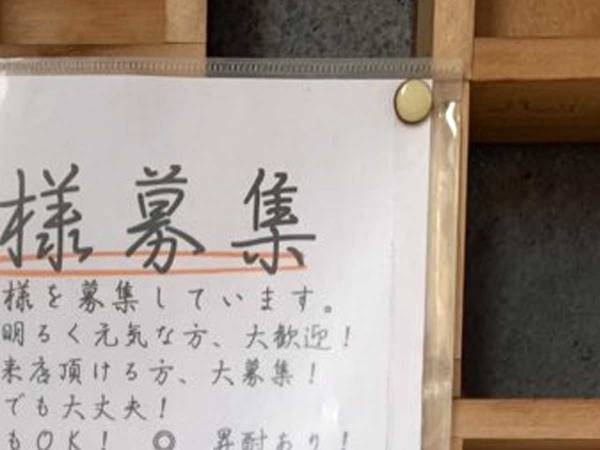 様募集
様を募集しています。
明るく元気な方、大歓迎!
来店頂ける方、大募集!
でも大丈夫!
もOK! ◎ 昇酬あり!